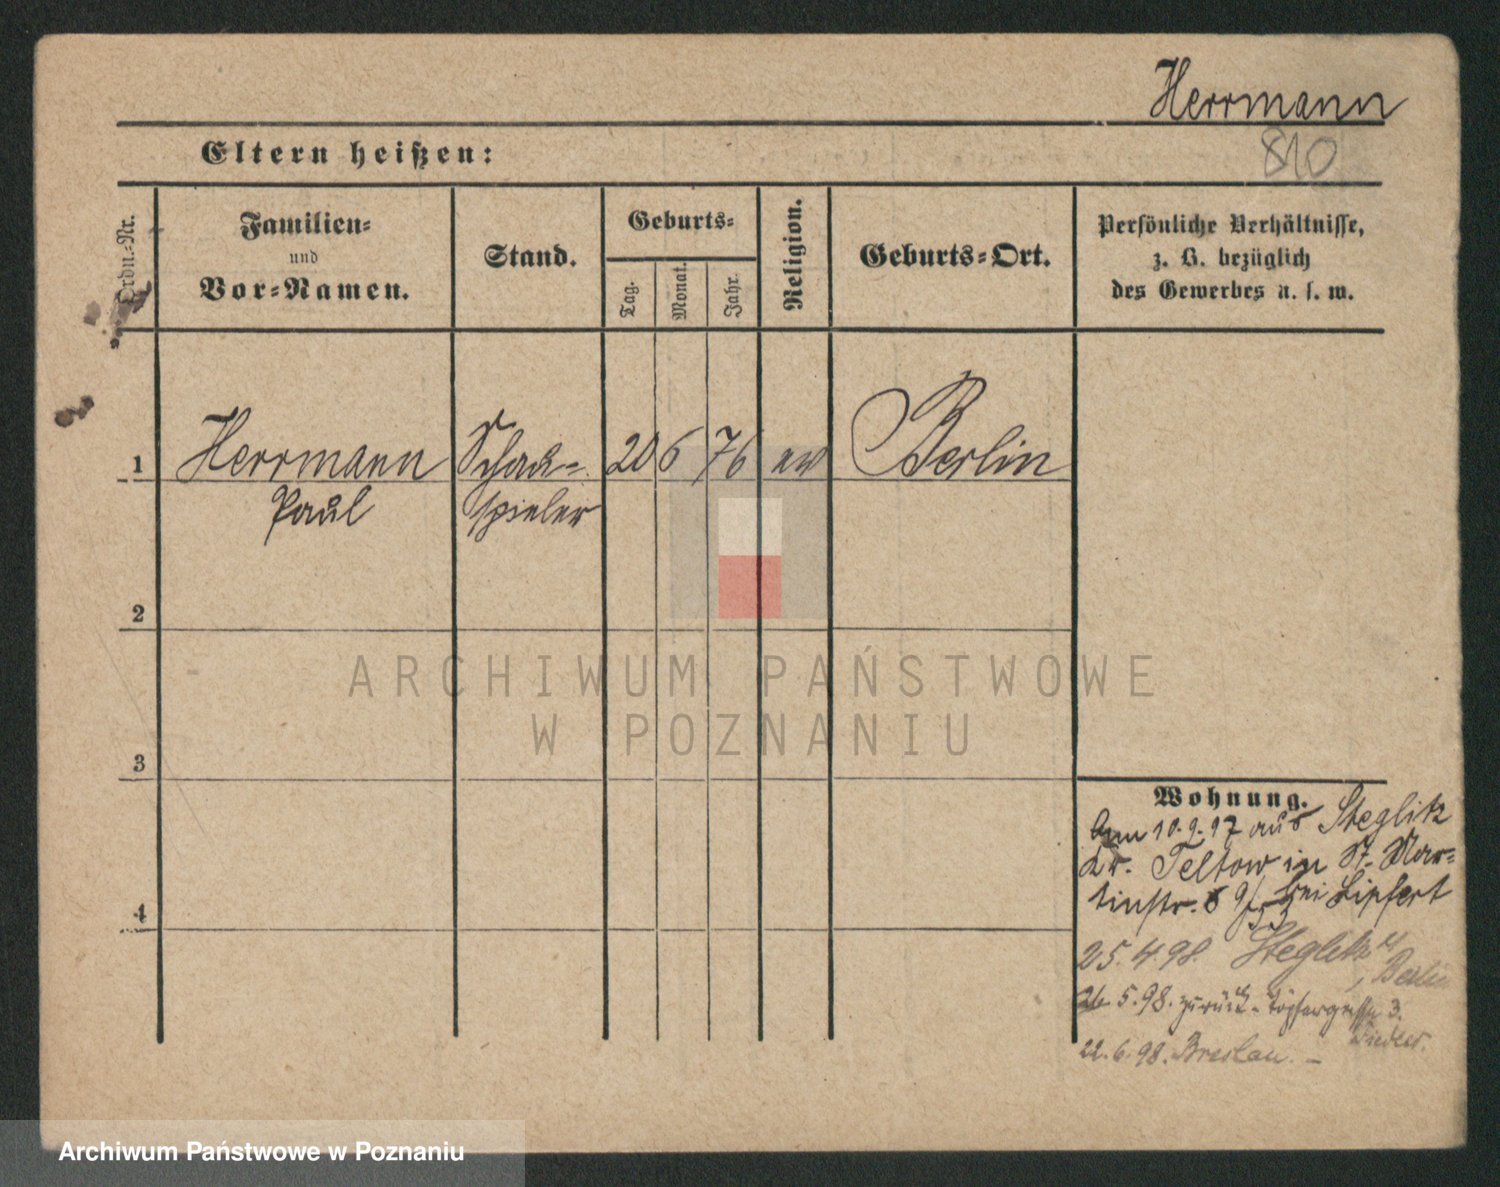 Herrmann
810
Eltern heißen:
Ordn.-Nr.
Familien-
und
Vor-Namen.
Stand.
Geburts-
Tag.
Monat.
Jahr.
Religion.
Geburts-Ort.
Persönliche Verhältnisse,
z. B. bezüglich
des Gewerbes u. s. w.
1 Herrmann Schau- 20 6 76 ev Berlin
Paul spieler
2
3
4
ARCHIWUM PAŃSTWOWE
W POZNANIU
Wohnung.
Am 10.9.97 aus Steglitz
Kr. Teltow in St. Mar-
tinstr. bei Lipfert
25.4.98. Steglitz
Berlin
26.5.98. zurück - Töpfergasse 3.
22.6.98. Breslau. -
Archiwum Państwowe w Poznaniu